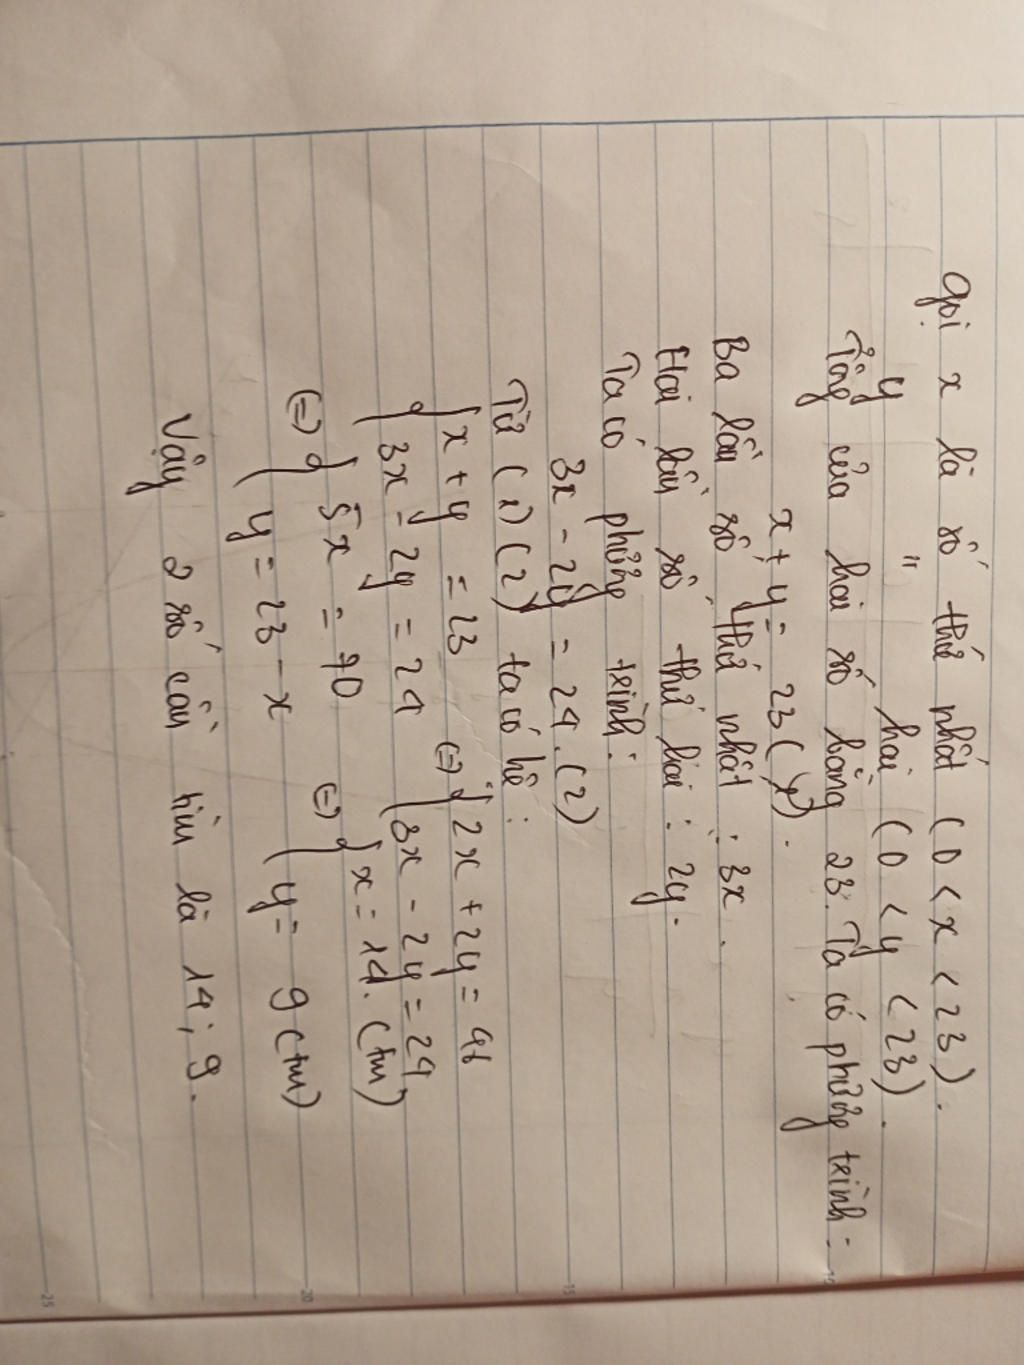 Gọi x là số thứ nhất (0 < x < 23).
y " hai (0 < y < 23).
Tổng của hai số bằng 23. Ta có phương trình:
x + y = 23 (1).
Ba lần số thứ nhất : 3x.
Hai lần số thứ hai : 2y.
Ta có phương trình:
3x - 2y = 24. (2)
Từ (1) (2) ta có hệ:
{ x + y = 23 (=) { 2x + 2y = 46
{ 3x - 2y = 24 { 3x - 2y = 24
(=) { 5x = 70 (=) { x = 14. (tm)
{ y = 23 - x { y = 9 (tm)
Vậy 2 số cần tìm là 14; 9.
10
15
20
25